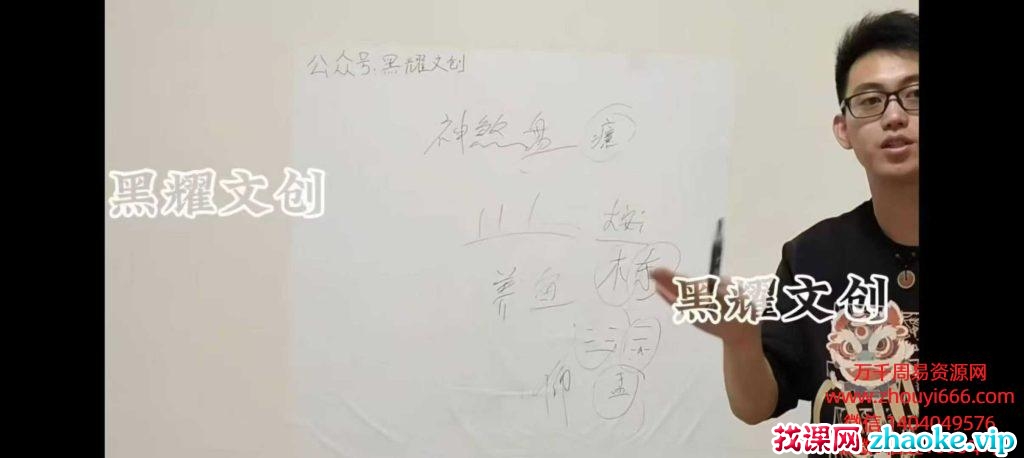 公众号:黑耀文创
神煞盘
黑耀文创
大安:
养鱼 木东
黑耀文创
卯 孟
万千周易资源网
www.zhouyi666.com
微信 1404049576
找课网 zhaoke.vip